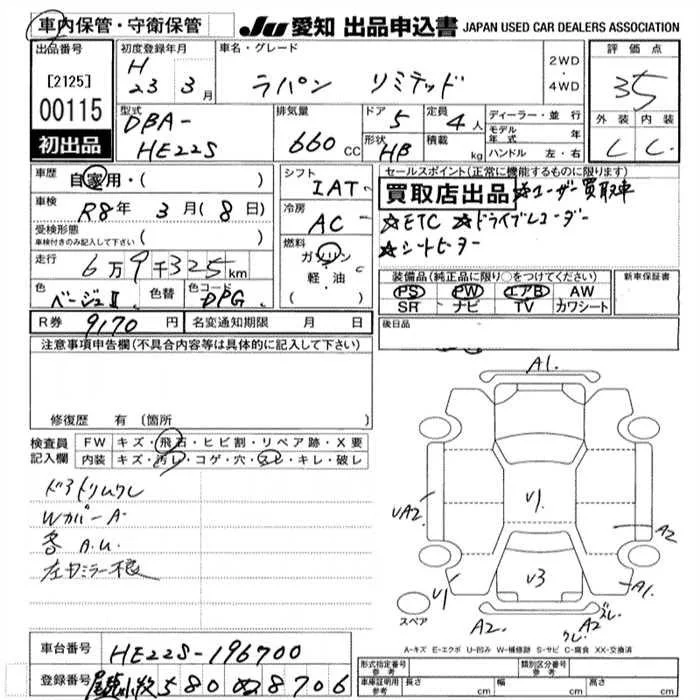 車内保管・守衛保管
JU 愛知 出品申込書 JAPAN USED CAR DEALERS ASSOCIATION
出品番号 初度登録年月 車名・グレード 評価点
[2125] H 23年 3月 ラパン リミテッド 2WD・4WD 3.5
00115 型式 排気量 ドア 定員 ディーラー・並行 外装 内装
初出品 DBA-HE22S 660CC 5 4人 モデル年式 年 C C
形状 HB 積載 kg ハンドル 左・右
車歴 自家用・( ) シフト IAT セールスポイント(正常に機能するものに限ります)
車検 R8年 3月(8日) 冷房 AC 買取店出品 ☆ユーザー買取車
受検形態 ( ) ☆ETC ☆ドライブレコーダー
車検付きのみ記入して下さい ☆シートヒーター
走行 6万9千325km 燃料 ガソリン・軽・油 ( )
色 ベージュII 色替 色コード DPG 装備品(純正品に限り○をつけてください) 新車保証書
PS PW エアB AW
SR ナビ TV カワシート
R券 9170円 名変通知期限 月 日 後日品
注意事項申告欄(不具合内容等は具体的に記入して下さい)
修復歴 有 (箇所
検査員記入欄 FW キズ・飛石・ヒビ割・リペア跡・X要
内装 キズ・汚レ・コゲ・穴・スレ・キレ・破レ
ドアトリムクレ
WカバーA
各 A.U.
左ドミラー根
A1.
V1.
UA2.
A2
V3
V1
A1.
A2.
A2 ズレ.
クレ.
スペア
A-キズ E-エクボ U-凹み W-補修跡 S-サビ C-腐食 XX-交換済
車台番号 HE22S-196700
登録番号 尾張小牧 580 ぬ 8706
形式指定番号 参考 類別区分番号 参考
車庫証明用 参考 長さ cm 幅 cm 高さ cm